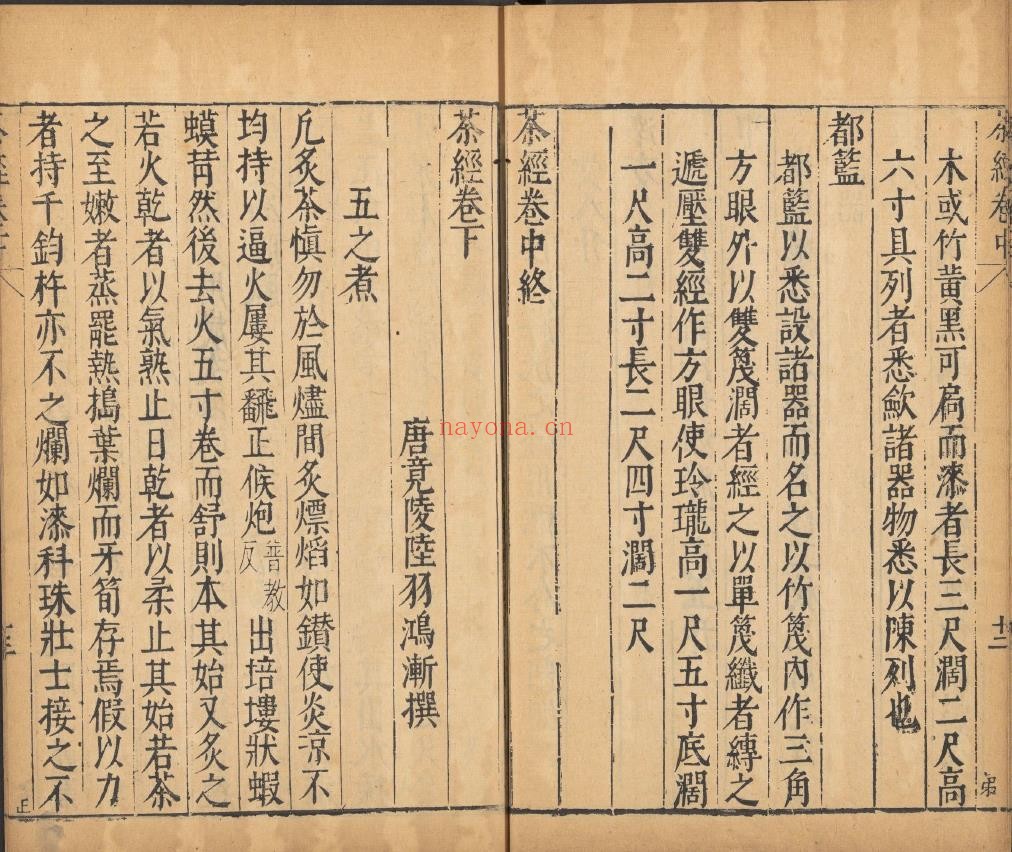 茶經卷中
木或竹黄黑可扃而漆者長三尺濶二尺高
六寸具列者悉歛諸器物悉以陳列也
都籃
都籃以悉設諸器而名之以竹篾内作三角
方眼外以雙篾濶者經之以單篾纖者縛之
遞壓雙經作方眼使玲瓏高一尺五寸底濶
一尺高二寸長二尺四寸濶二尺
茶經卷中終
茶經卷下
唐竟陵陸羽鴻漸撰
五之煮
凡炙茶慎勿於風燼間炙熛熖如鑚使炎凉不
均持以逼火屢其飜正候炮普教反出培塿狀蝦
蟇背然後去火五寸卷而舒則本其始又炙之
若火乾者以氣熟止日乾者以柔止其始若茶
之至嫩者蒸罷熱搗葉爛而牙筍存焉假以力
者持千鈞杵亦不之爛如漆科珠壯士接之不
nayona.cn